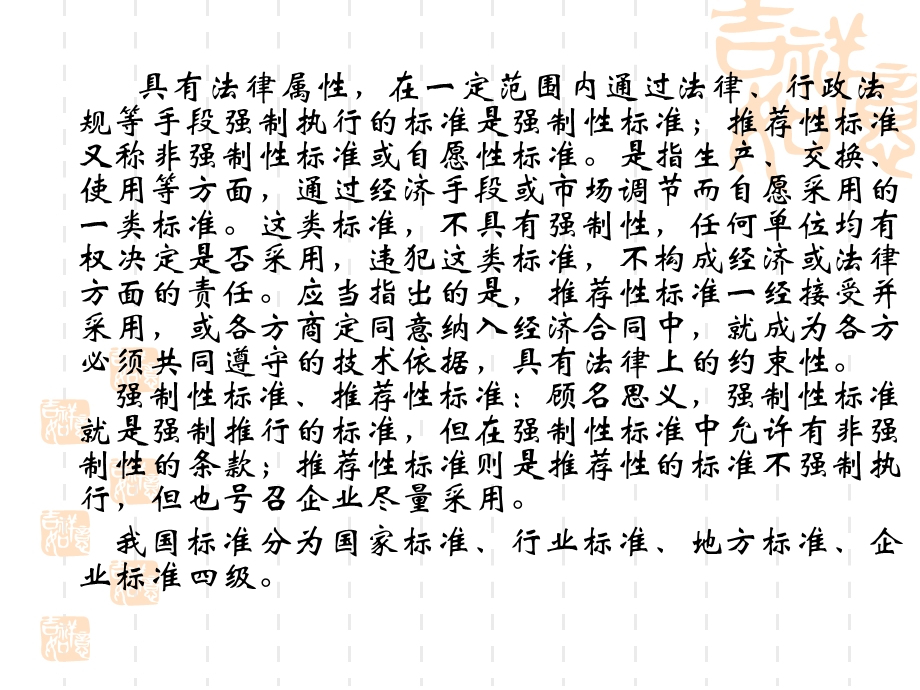 吉祥
如意
具有法律属性，在一定范围内通过法律、行政法
规等手段强制执行的标准是强制性标准；推荐性标准
又称非强制性标准或自愿性标准。是指生产、交换、
使用等方面，通过经济手段或市场调节而自愿采用的
一类标准。这类标准，不具有强制性，任何单位均有
权决定是否采用，违犯这类标准，不构成经济或法律
方面的责任。应当指出的是，推荐性标准一经接受并
采用，或各方商定同意纳入经济合同中，就成为各方
必须共同遵守的技术依据，具有法律上的约束性。
强制性标准、推荐性标准：顾名思义，强制性标准
就是强制推行的标准，但在强制性标准中允许有非强
制性的条款；推荐性标准则是推荐性的标准不强制执
行，但也号召企业尽量采用。
我国标准分为国家标准、行业标准、地方标准、企
业标准四级。
吉祥
如意
吉祥
如意
吉祥
如意
吉祥
如意
吉祥
如意
吉祥
如意